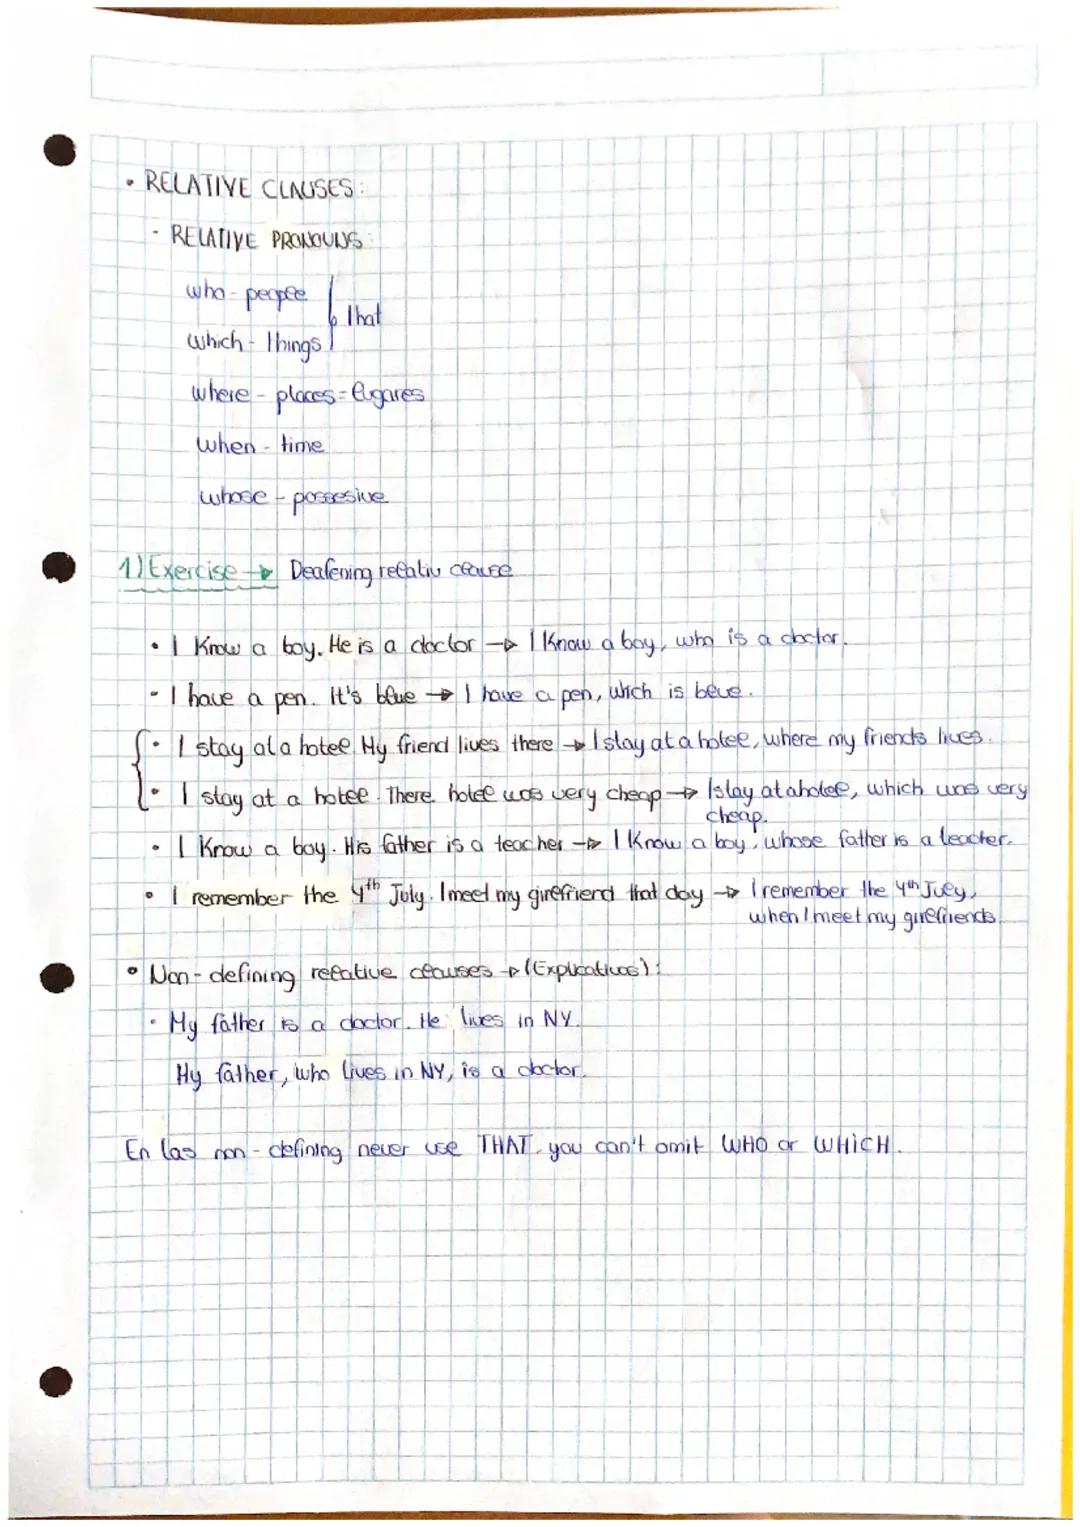 • RELATIVE CLAUSES:
- RELATIVE PRONOUNS:
who - people
that
which - things
where - places = lugares
when - time
whose - possesive
1) Exercise → Deafening relativ clause
• I Know a boy. He is a doctor → I Know a boy, who is a doctor.
• I have a pen. It's blue → I have a pen, which is blue.
• I stay at a hotel. My friend lives there → I stay at a hotel, where my friends lives.
• I stay at a hotel. There hotel was very cheap → I stay at a hotel, which was very
cheap.
• I Know a boy. His father is a teacher → I Know a boy, whose father is a teacher.
• I remember the 4th July. I meet my girlfriend that day → I remember the 4th July,
when I meet my girlfriends.
• Non-defining relative clauses → (Explicativas):
• My father is a doctor. He lives in NY.
My father, who lives in NY, is a doctor.
En las non-defining never use THAT. you can't omit WHO or WHICH.